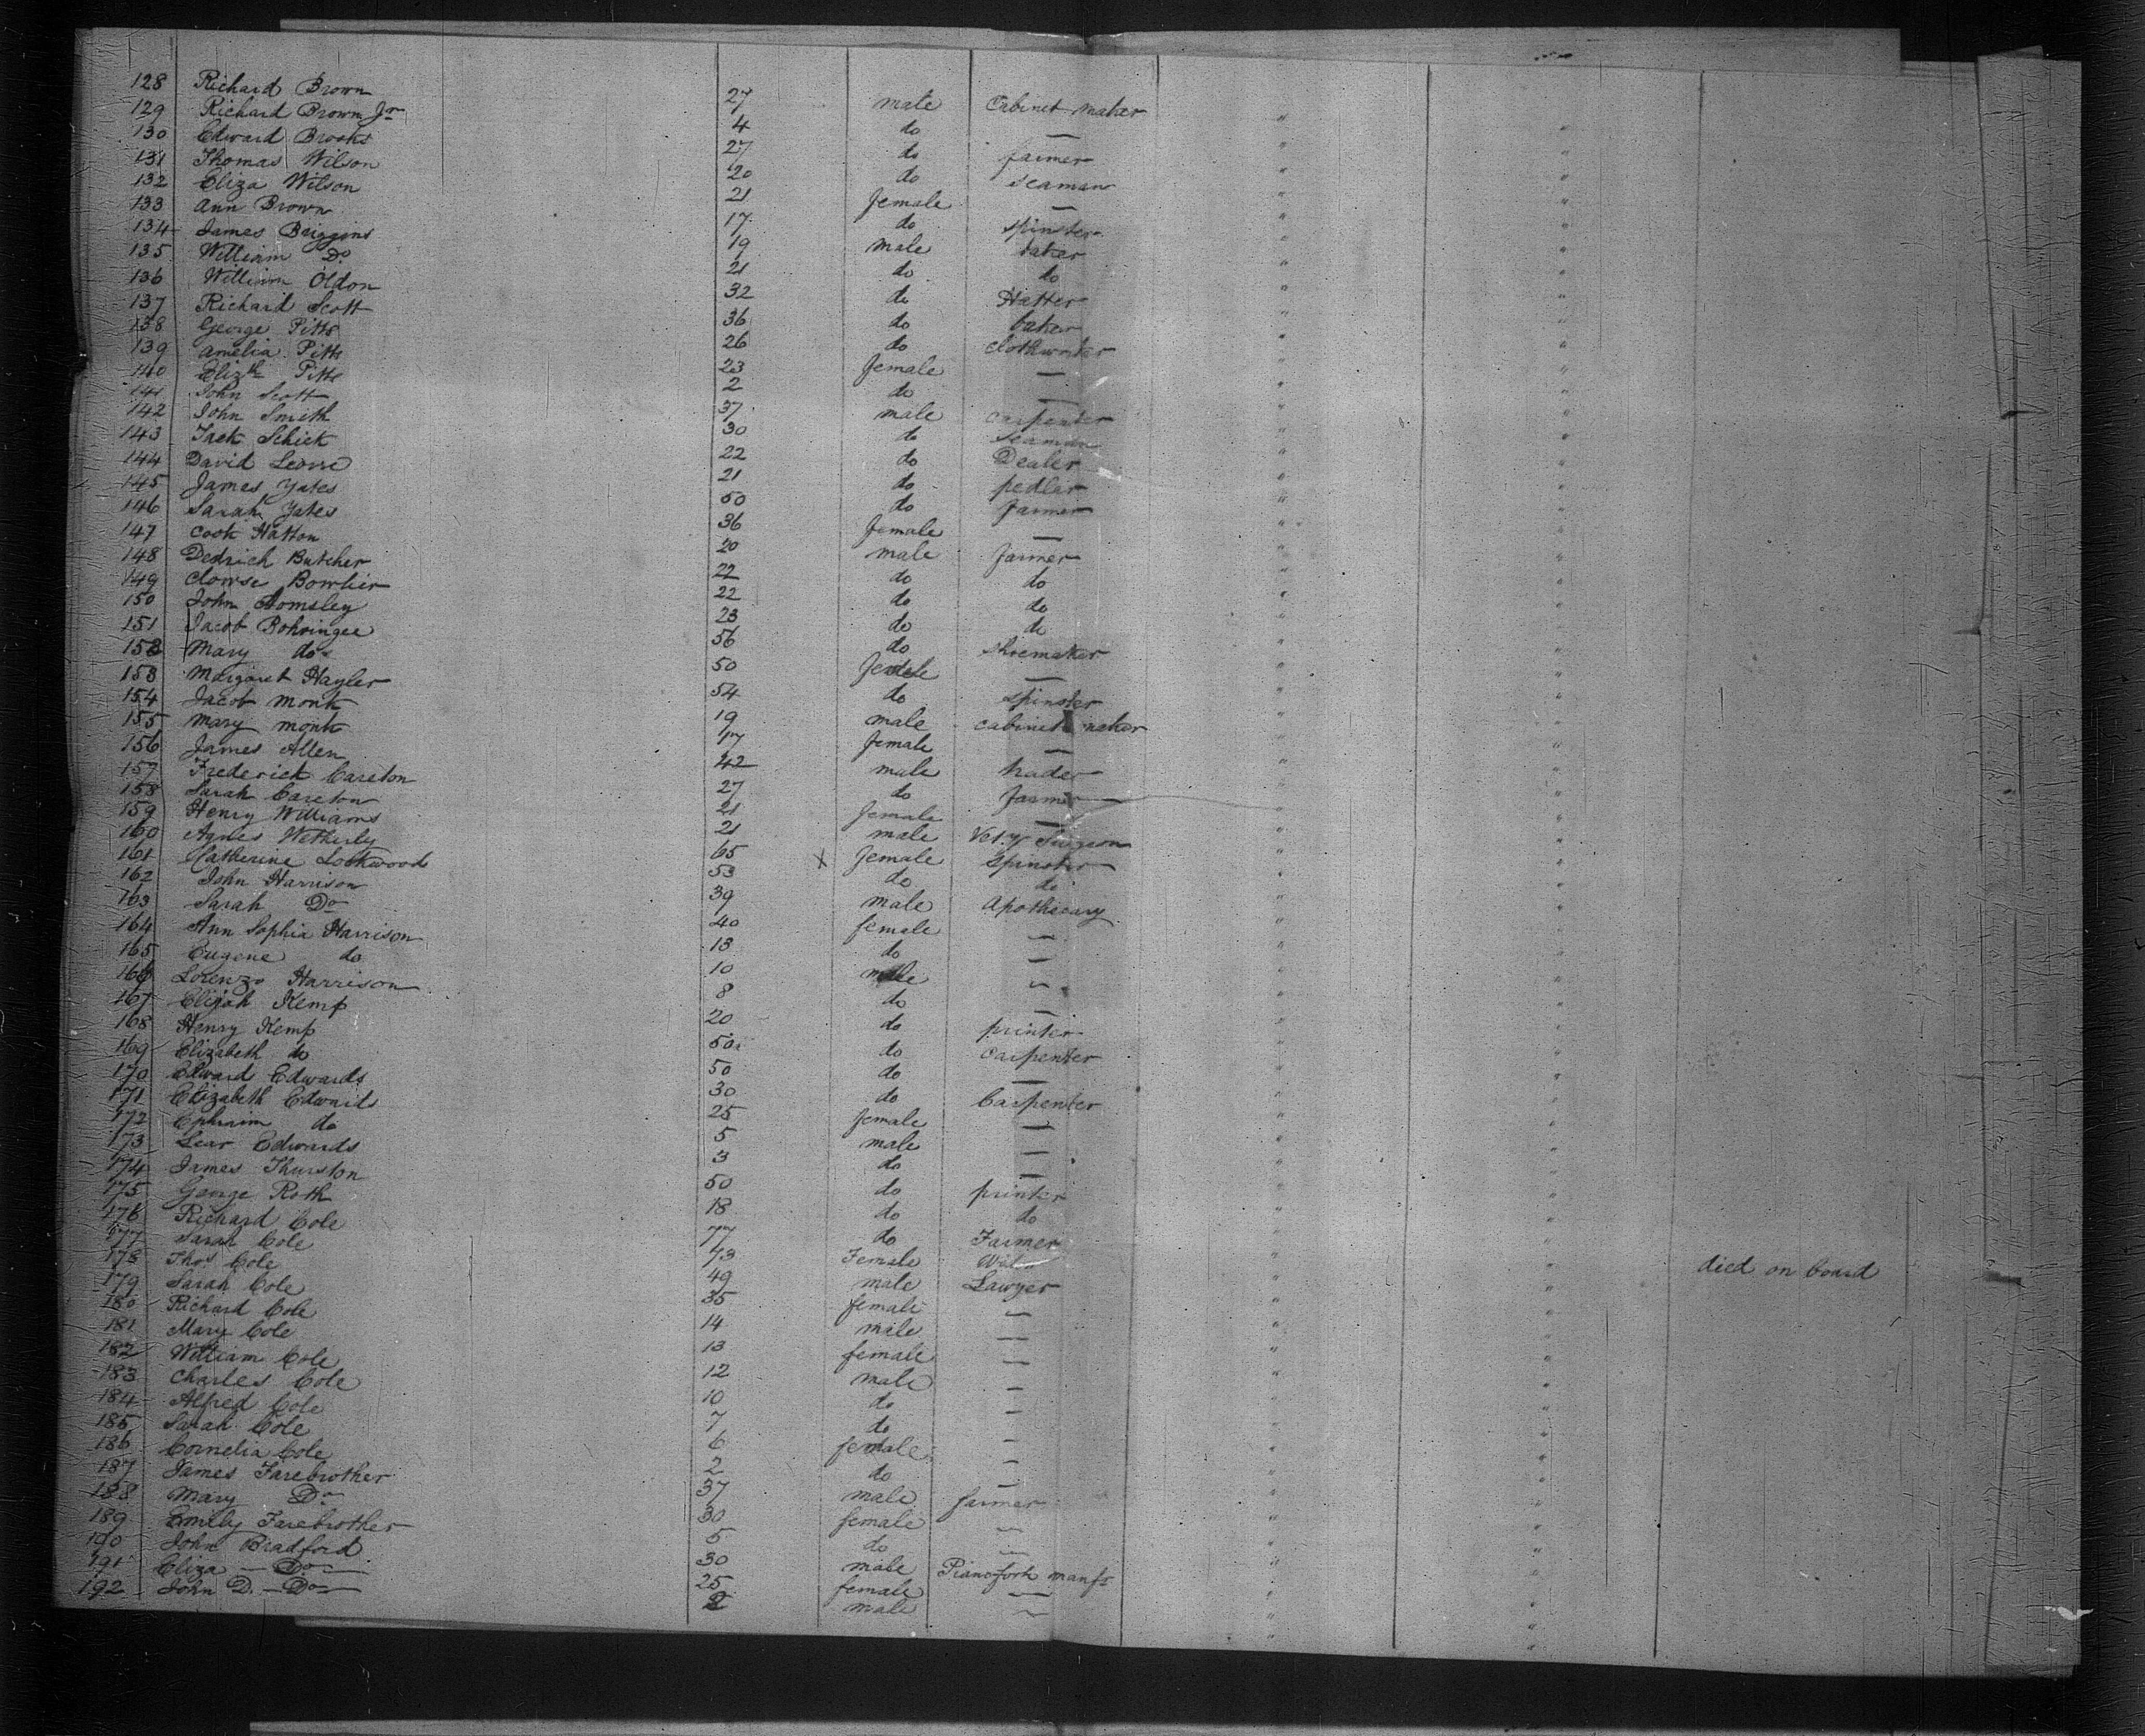 128 Richard Brown 27 male Cabinet maker " "
129 Richard Brown Jr 4 do — " "
130 Edward Brooks 27 do farmer " "
131 Thomas Wilson 20 do seaman " "
132 Eliza Wilson 21 female — " "
133 Ann Brown 17 do spinster " "
134 James Briggins 19 male baker " "
135 William Do 21 do do " "
136 William Oldon 32 do Hatter " "
137 Richard Scott 36 do baker " "
138 George Pitts 26 do clothworker " "
139 Amelia Pitts 23 female — " "
140 Elizth Pitts 2 do — " "
141 John Scott 37 male carpenter " "
142 John Smith 30 do Seaman " "
143 Jack Schick 22 do Dealer " "
144 David 21 do pedlar " "
145 James Yates 50 do farmer " "
146 Sarah Yates 36 female — " "
147 Cook Hatton 20 male farmer " "
148 Dedrich Butcher 22 do do " "
149 Clowse Bowlier 22 do do " "
150 John 23 do do " "
151 Jacob Bohringee 56 do Shoemaker " "
152 Mary do 50 female — " "
153 Margaret Hayler 54 do spinster " "
154 Jacob Monk 19 male cabinet maker " "
155 Mary Monk 17 female — " "
156 James Allen 42 male trader " "
157 Frederick Careton 27 do farmer " "
158 Sarah Careton 21 female — " "
159 Henry Williams 21 male Vety Surgeon " "
160 Agnes Wetherly 65 X female Spinster " "
161 Catherine Lockwood 53 do do " "
162 John Harrison 39 male Apothecary " "
163 Sarah Do 40 female — " "
164 Ann Sophia Harrison 13 do — " "
165 Eugene do 10 male — " "
166 Lorenzo Harrison 8 do — " "
167 Elijah Kemp 20 do printer " "
168 Henry Kemp 50 do carpenter " "
169 Elizabeth do 50 do — " "
170 Edward Edwards 30 do Carpenter " "
171 Elizabeth Edwards 25 female — " "
172 Ephraim do 5 male — " "
173 Lear Edwards 3 do — " "
174 James Thurston 50 do printer " "
175 George Roth 18 do do " "
176 Richard Cole 77 do Farmer " "
177 Sarah Cole 73 Female " " died on board
178 Thos Cole 49 male Lawyer " "
179 Sarah Cole 35 female — " "
180 Richard Cole 14 male — " "
181 Mary Cole 13 female — " "
182 William Cole 12 male — " "
183 Charles Cole 10 do — " "
184 Alfred Cole 7 do " "
185 Sarah Cole 6 female — " "
186 Cornelia Cole 2 do — " "
187 James Farebrother 37 male farmer " "
188 Mary Do 30 female — " "
189 Emily Farebrother 5 do — " "
190 John Bradford 30 male Pianoforte manfr " "
191 Eliza — Do — 25 female — " "
192 John D. — Do — 2 male — " "